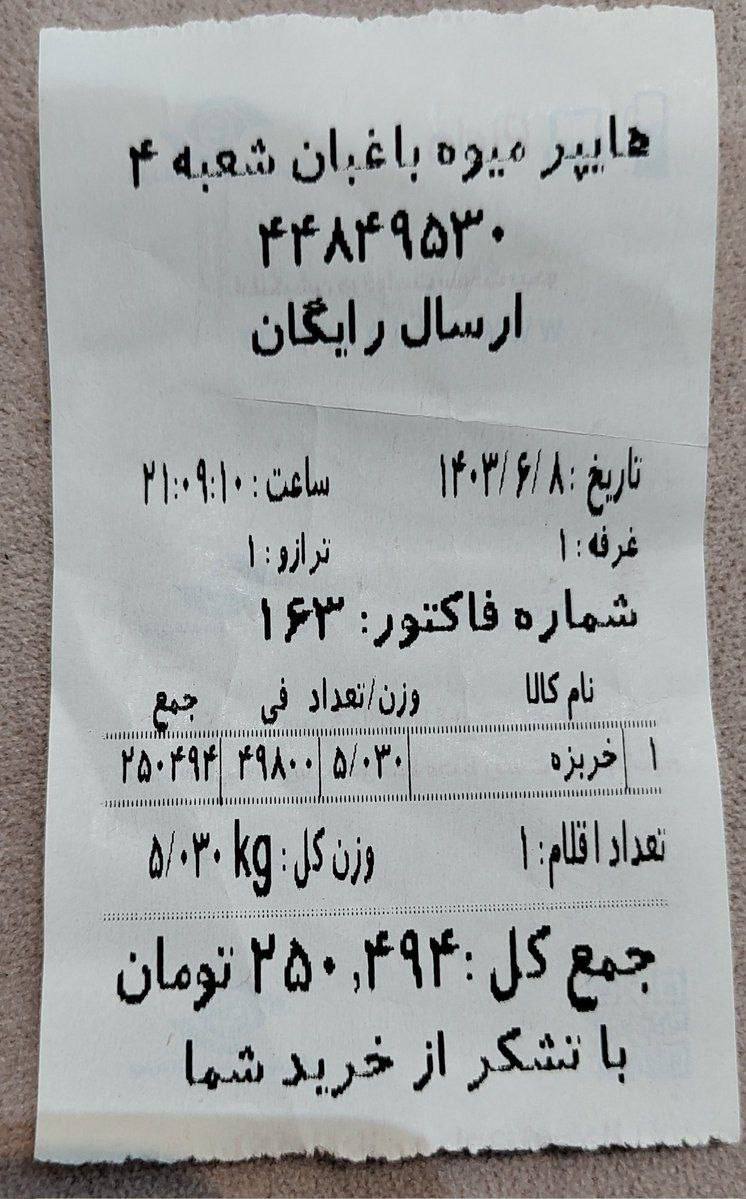 هایپر میوه باغبان شعبه ۴
۴۴۸۴۹۵۳۰
ارسال رایگان
تاریخ :۱۴۰۳/۶/۸ ساعت :۲۱:۰۹:۱۰
غرفه :۱ ترازو :۱
شماره فاکتور: ۱۶۳
نام کالا وزن/تعداد فی جمع
۱ خربزه ۵/۰۳۰ ۴۹۸۰۰ ۲۵۰۴۹۴
تعداد اقلام: ۱ وزن کل: ۵/۰۳۰ kg
جمع کل :۲۵۰,۴۹۴ تومان
با تشکر از خرید شما